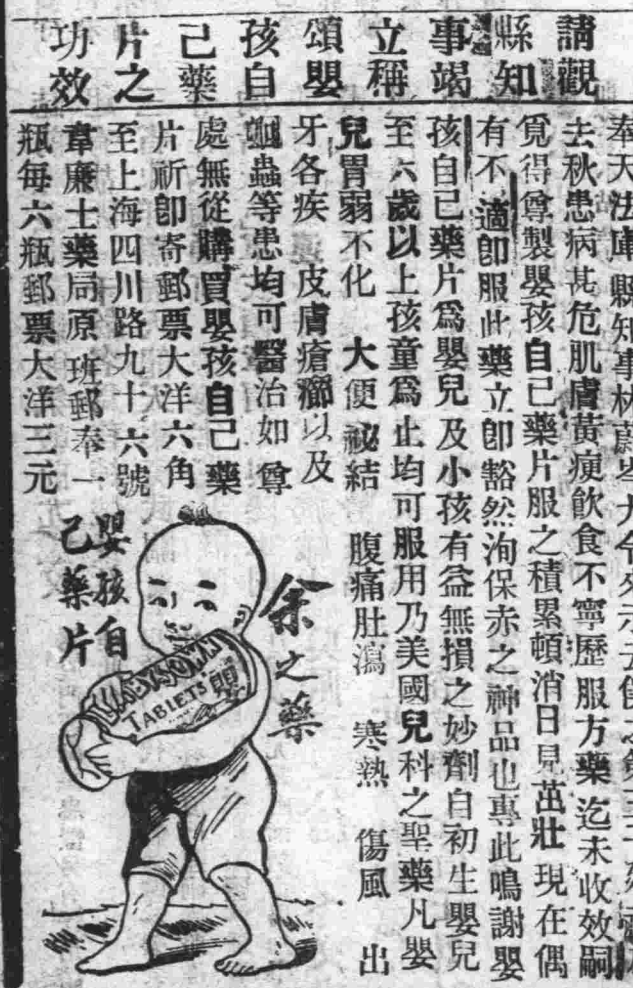 請觀
縣知
事竭
立稱
頌嬰
孩自
己藥
片之
功效
奉天法庫縣知事林蔚岑大令來示云
去秋患病甚危肌膚黃瘦飲食不寧歷服方藥迄未收效嗣
覓得尊製嬰孩自己藥片服之積累頓消日見茁壯現在偶
有不適卽服此藥立卽豁然洵保赤之神品也專此鳴謝嬰
孩自己藥片爲嬰兒及小孩有益無損之妙劑自初生嬰兒
至六歲以上孩童爲止均可服用乃美國兒科之聖藥凡嬰
兒胃弱不化 大便祕結 腹痛肚瀉 寒熱 傷風 出
牙各疾 皮膚瘡癤以及
蛔蟲等患均可醫治如尊
處無從購買嬰孩自己藥
片祈卽寄郵票大洋六角
至上海四川路九十六號
韋廉士藥局原班郵奉一
瓶每六瓶郵票大洋三元
余之藥
嬰孩自
己藥片
BABY'S OWN
TABLETS